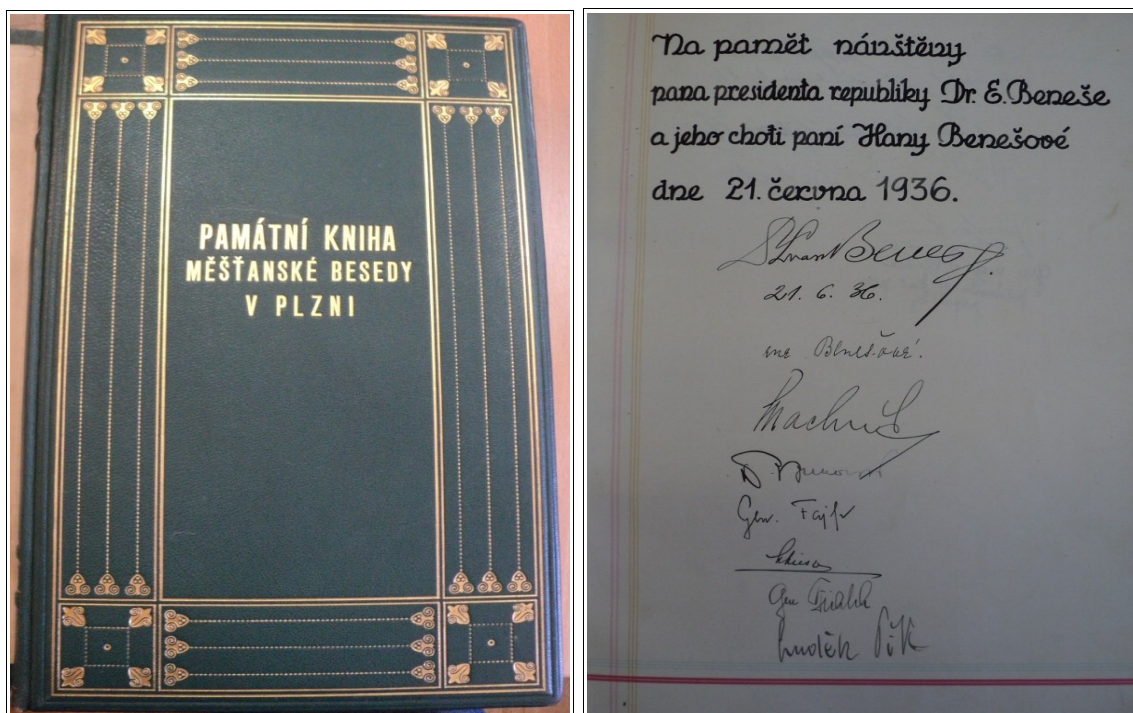 PAMÁTNÍ KNIHA
MĚŠŤANSKÉ BESEDY
V PLZNI
Na pamět návštěvy
pana presidenta republiky Dr. E. Beneše
a jeho choti paní Hany Benešové
dne 21. června 1936.
Beneš
21. 6. 36.
Benešová.
Gen. Fajfr
Gen
Luděk Pik